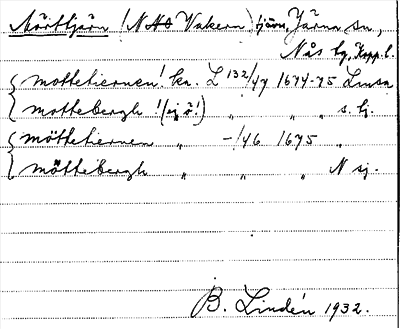 Mörttjärn (N Vakern) tjärn, Järna sn,
Nås hg, Kopp. l.
mottetiernen! kn. L 132/47 1674-75 Limsa
mottebergh !(ej ö!) " " " s. sj.
möttetiernen " -/46 1675 "
möttebergh " " " N sj.
B. Lindén 1932.